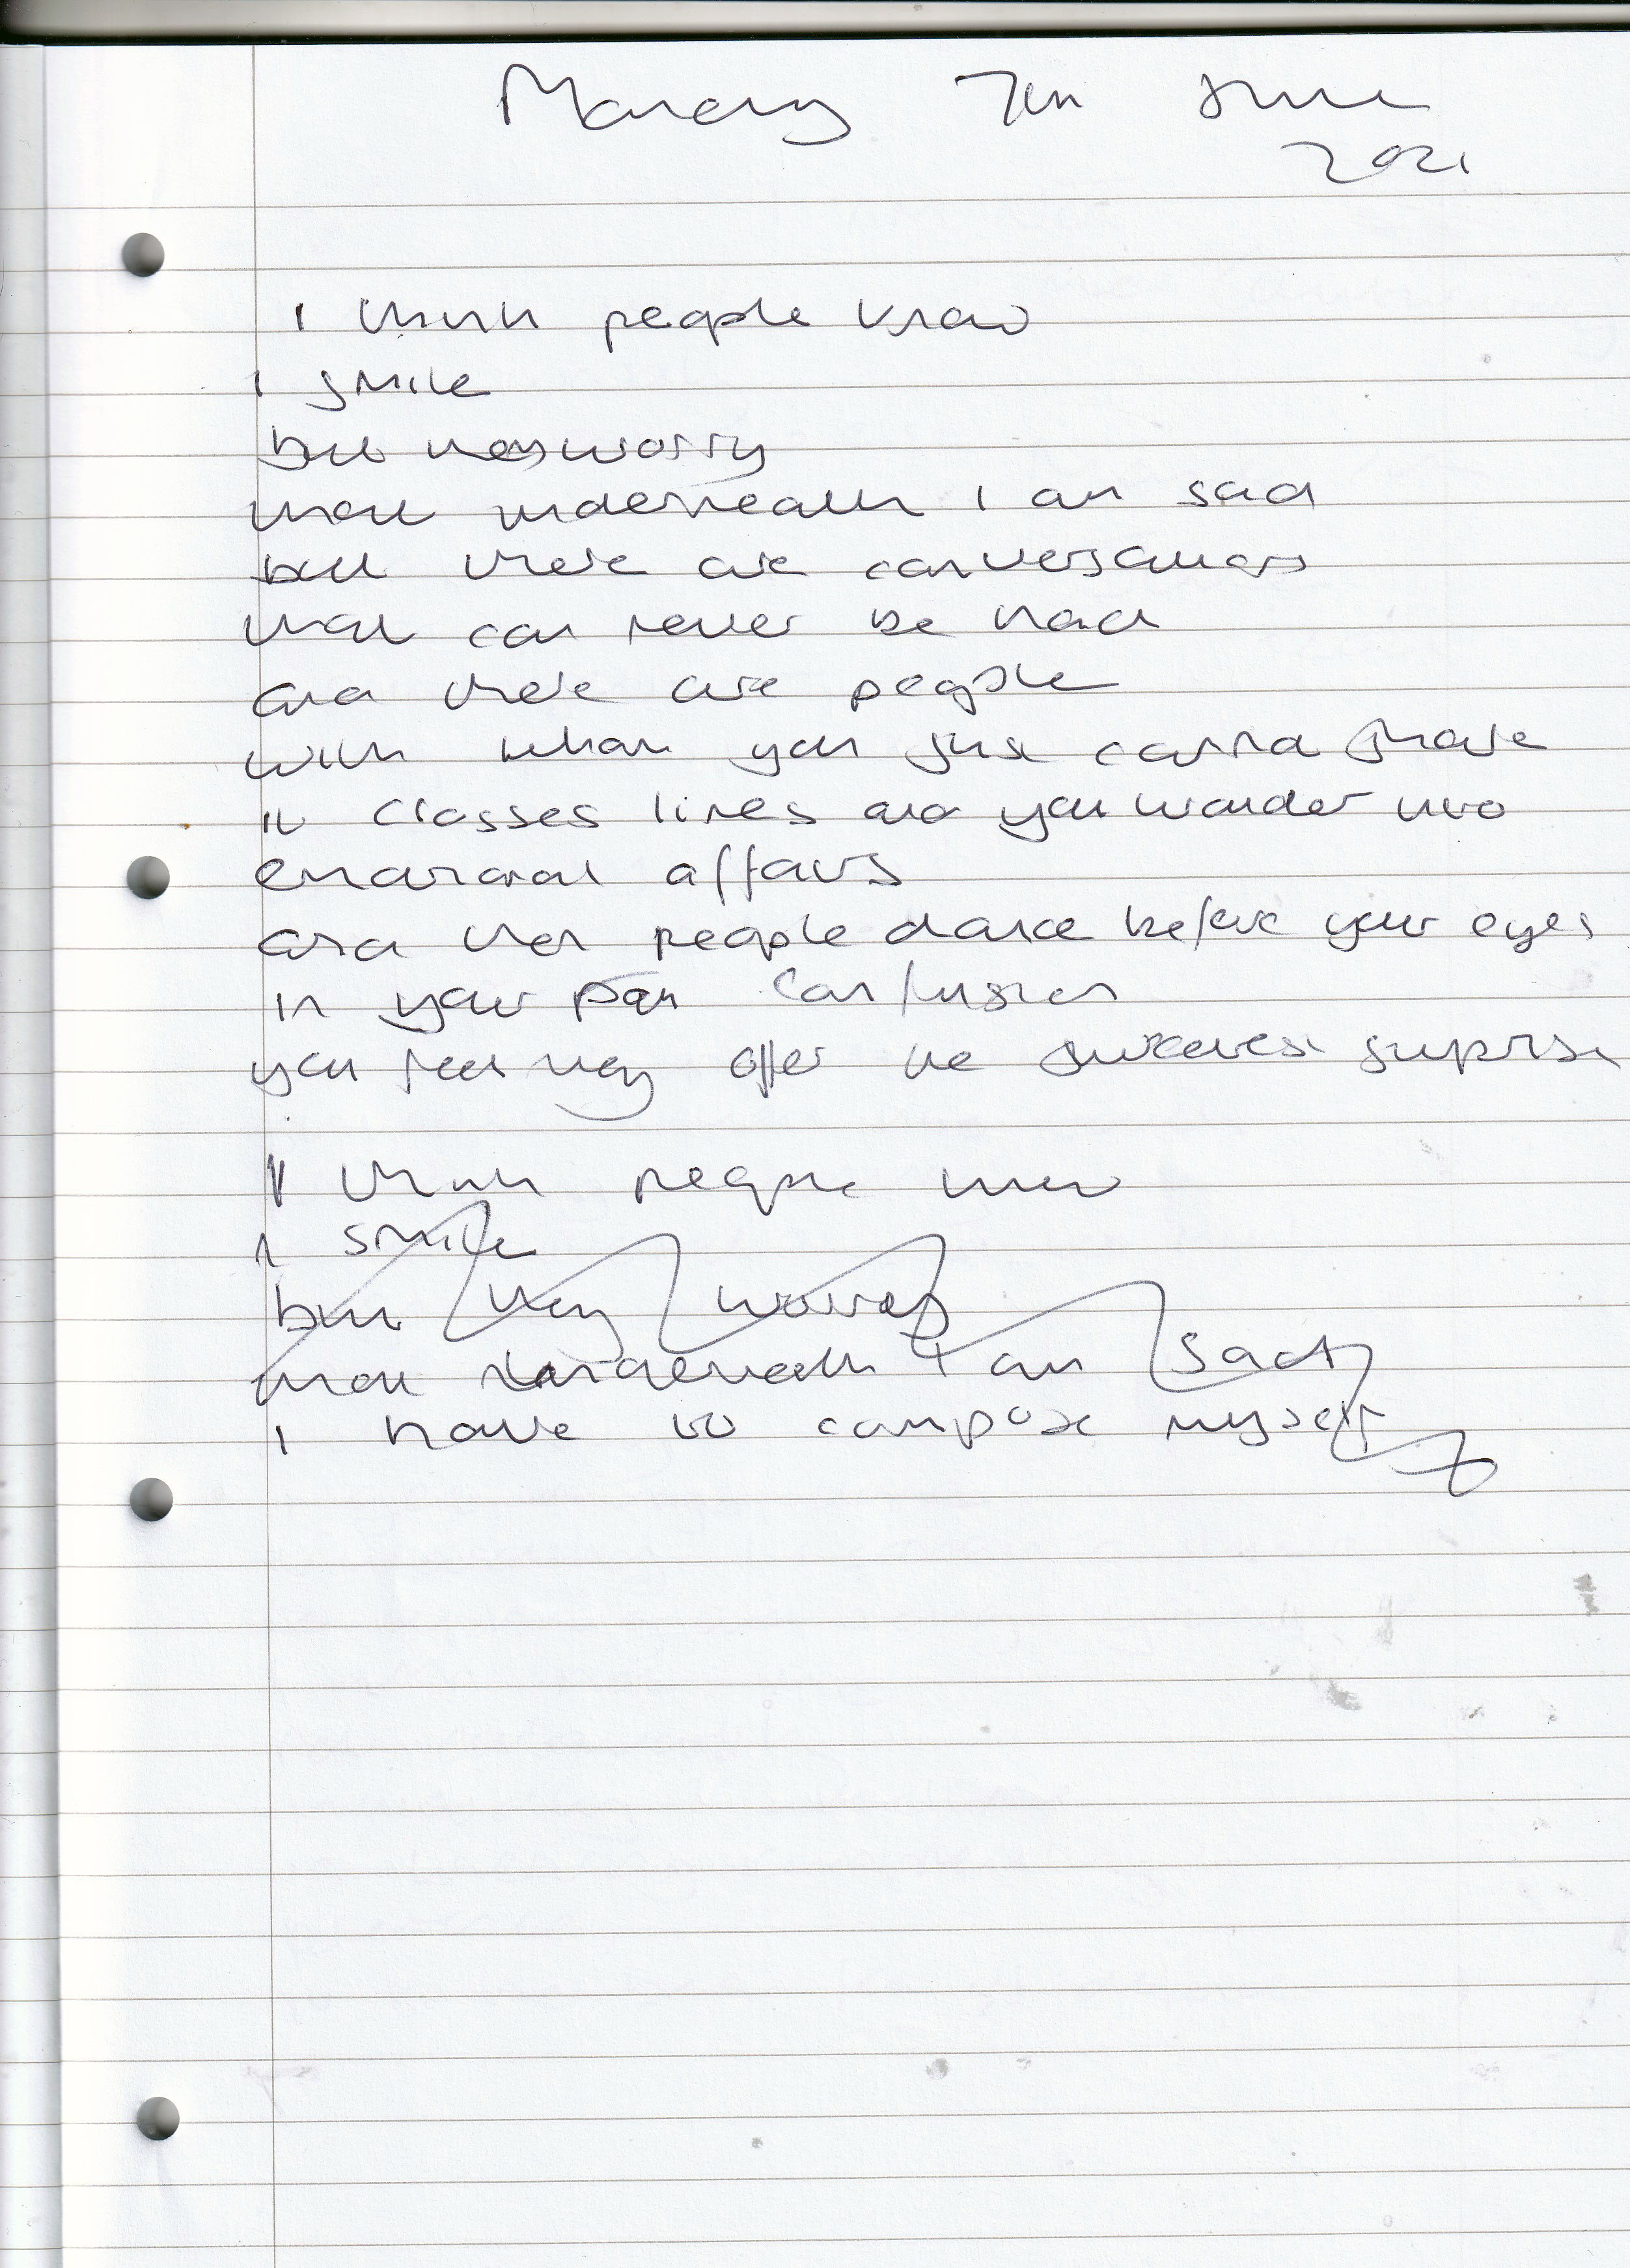 Monday 7th June
2021
I think people know
I smile
but they worry
that underneath I am sad
but there are conversations
that can never be had
and there are people
with whom you just cannot share
it crosses lines and you wander into
emotional affairs
and then people dance before your eyes
in your pain confusion
you feel they offer the sweetest suprise
I think people know
I smile
but they worry
that underneath I am sad
I have to compose myself